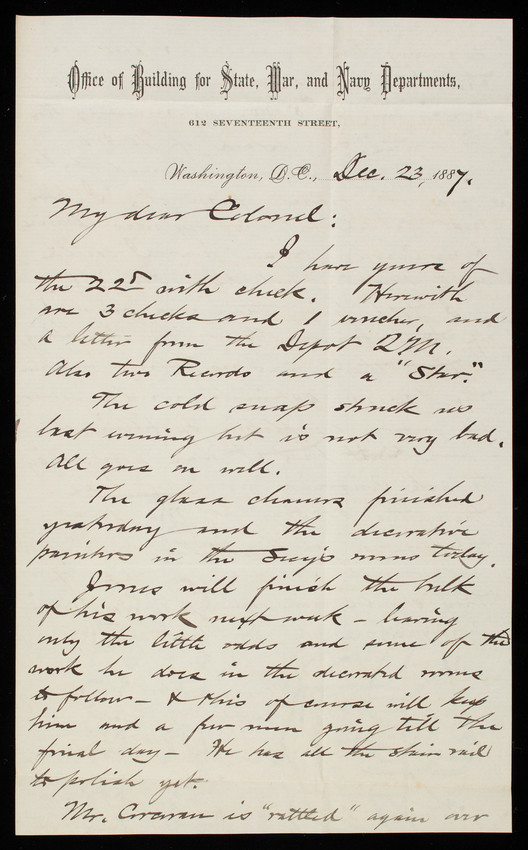 Office of Building for State, War, and Navy Departments,
612 SEVENTEENTH STREET,
Washington, D.C., Dec. 23, 1887.
My dear Colonel:
I have yours of
the 22d with check. Herewith
are 3 checks and 1 voucher, and
a letter from the Depot Q.M.
Also two Records and a "Star."
The cold snap struck us
last evening but is not very bad.
All goes on well.
The glass cleaners finished
yesterday and the decorative
painters in the Secy's rooms today.
Jones will finish the bulk
of his work next week - leaving
only the little odds and some of the
work he does in the decorated rooms
to follow - & this of course will keep
him and a few men going till the
final day - He has all the stair rail
to polish yet.
Mr. Corcoran is "rattled" again over